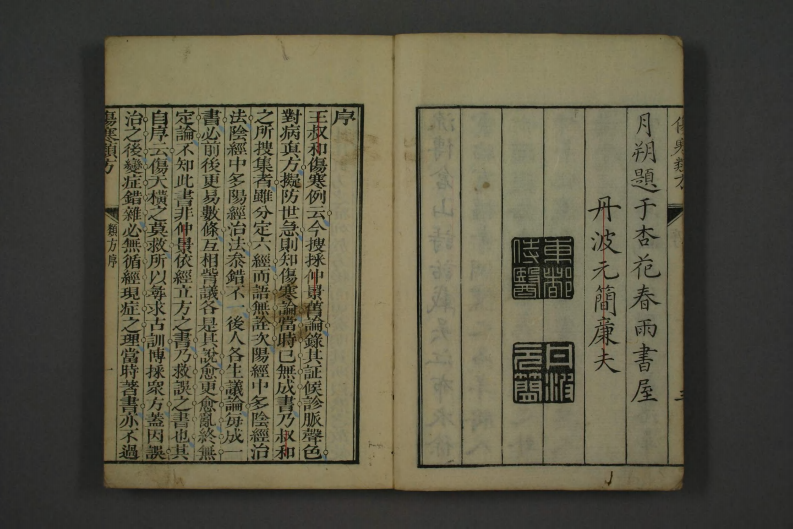 月朔題于杏花春雨書屋
丹波元簡廉夫
東都
侍醫
丹波
元簡
序
王叔和傷寒例云今搜採仲景舊論錄其証候診脈聲色
對病真方擬防世急則知傷寒論當時已無成書乃叔和
之所搜集者雖分定六經而語無詮次陽經中多陰經治
法陰經中多陽經治法叅錯不一後人各生議論每成一
書必前後更易數條互相訾議各是其說愈更愈亂終無
定論不知此書非仲景依經立方之書乃救誤之書也其
自序云傷夭橫之莫救所以尋求古訓博採衆方蓋因誤
治之後變症錯雜必無循經現症之理當時著書亦不過
傷寒類方
類方序
一